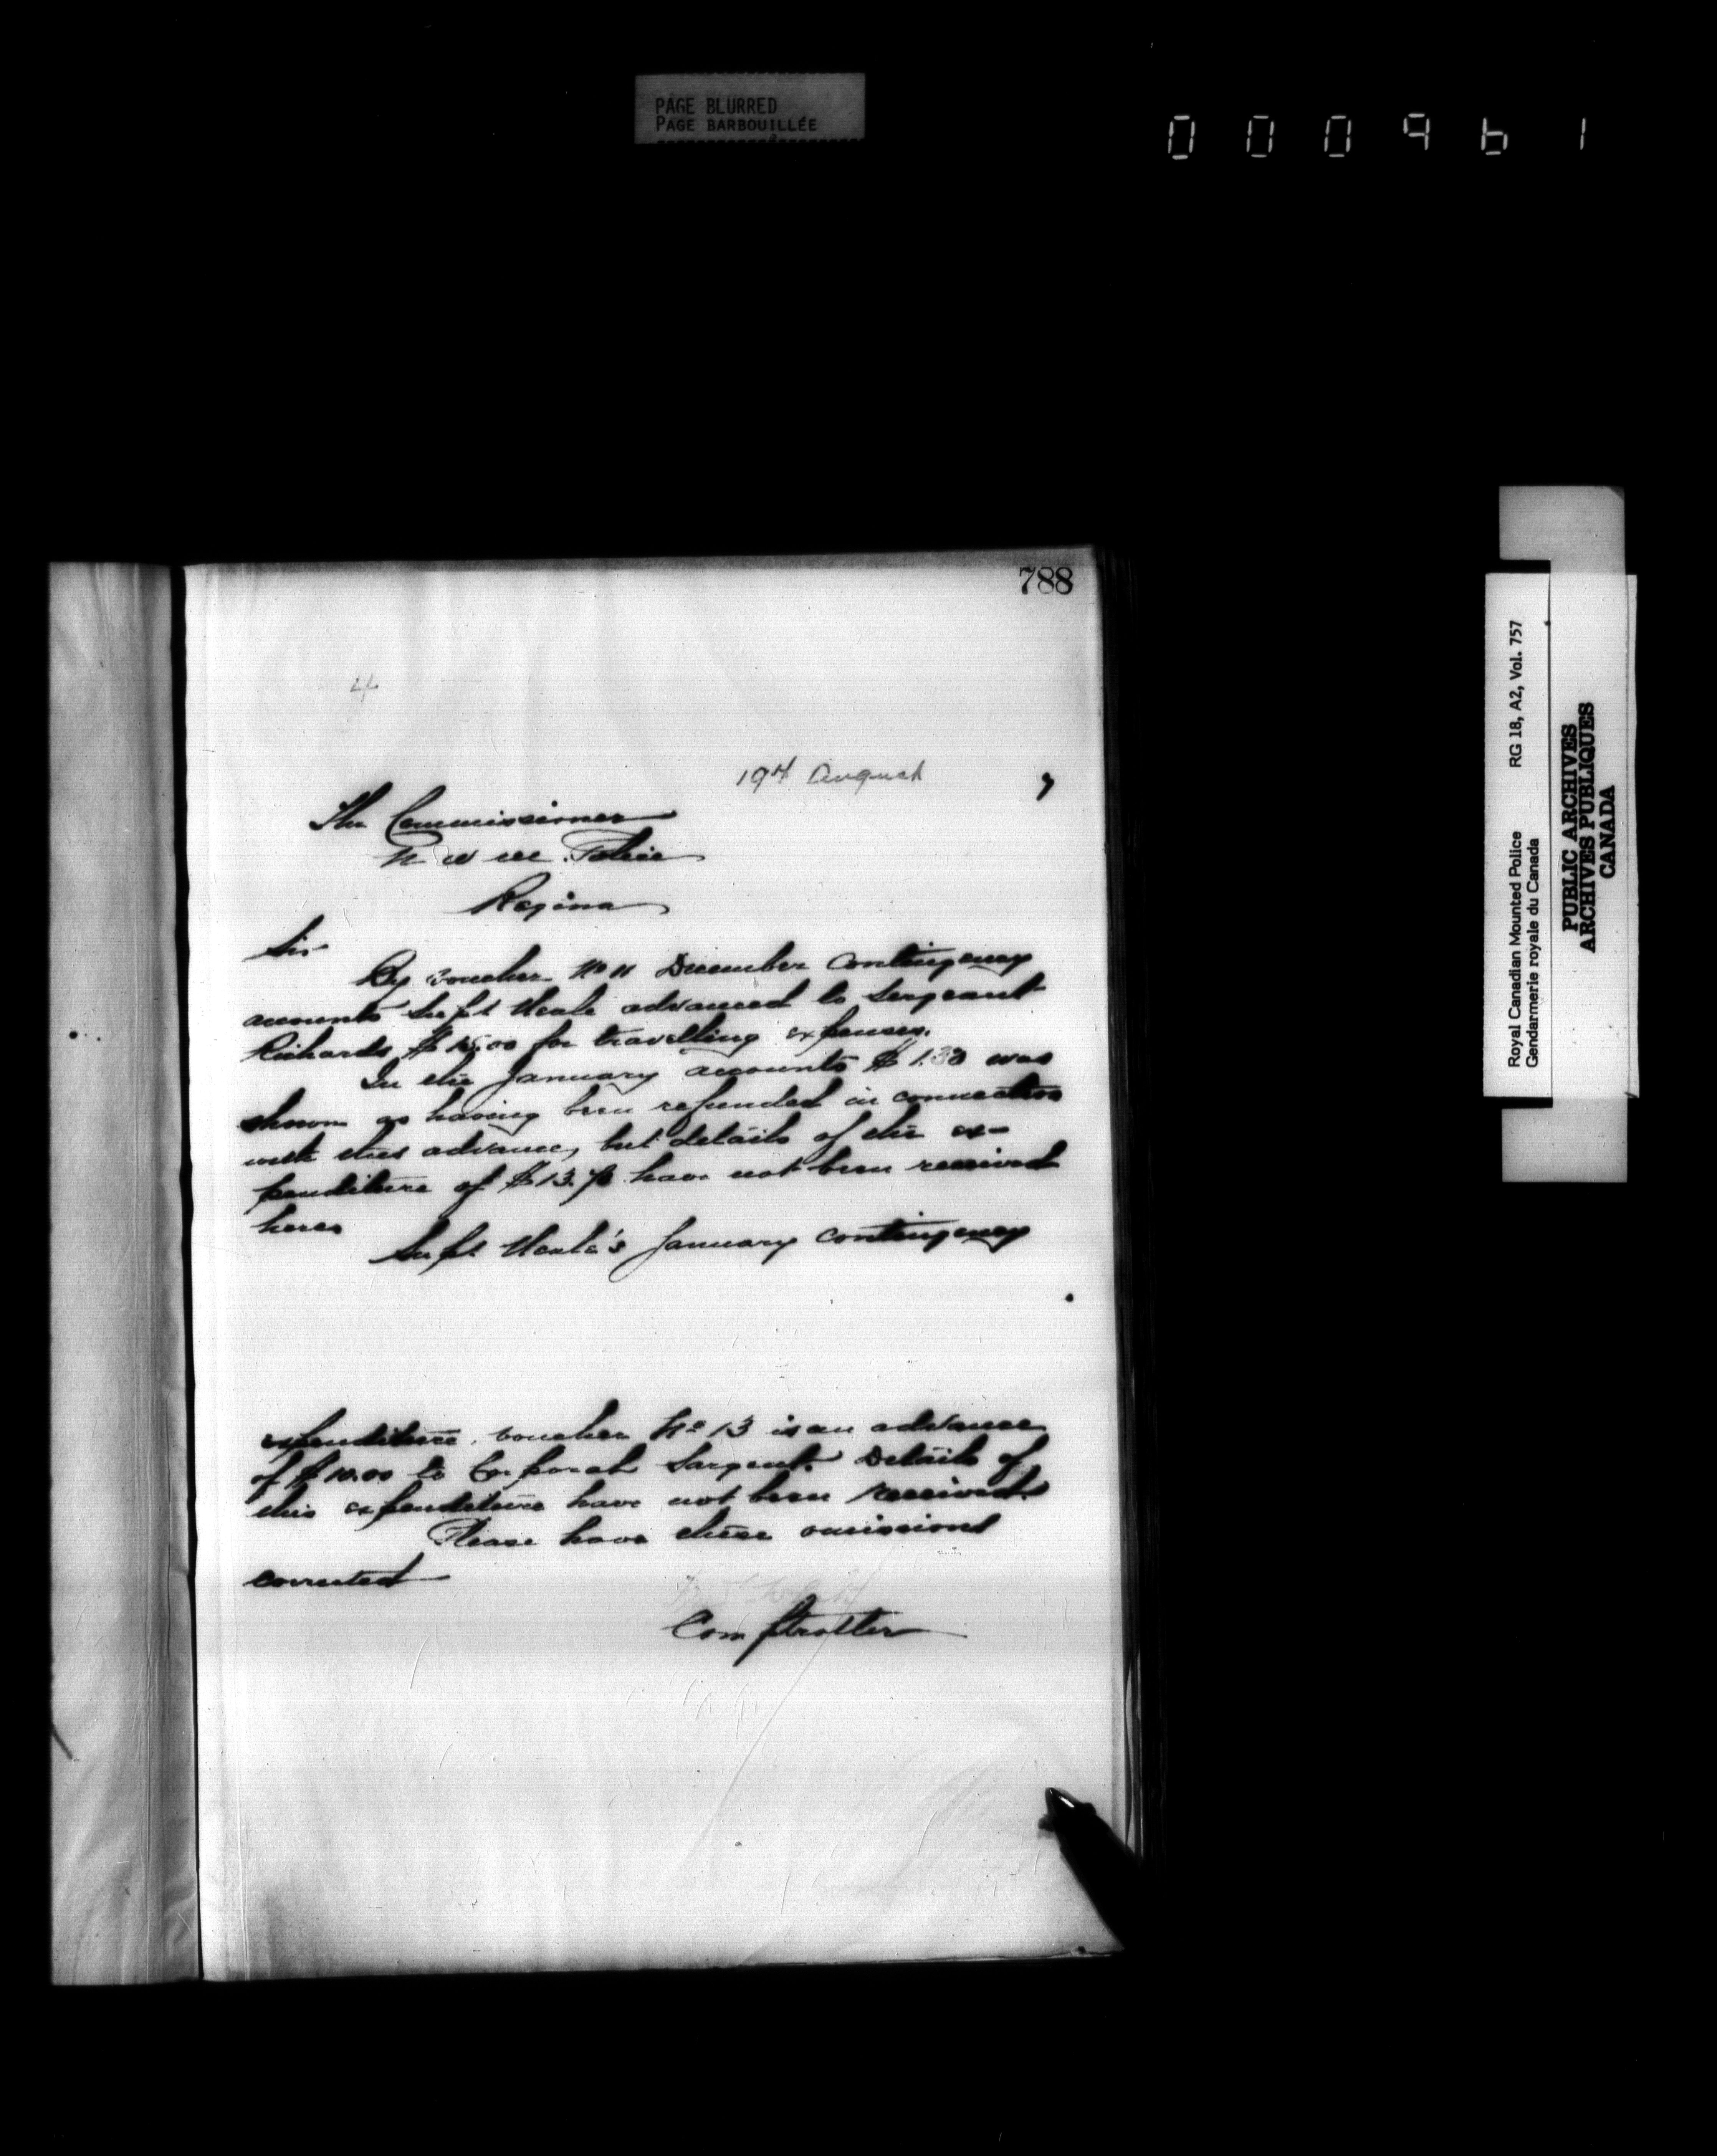 PAGE BLURRED
PAGE BARBOUILLÉE
000961
788
4
19th August 7
The Commissioner
N W M. Police
Regina
Sir
By voucher No 11 December Contingency
accounts Supt Neale advanced to Sergeant
Richards $15.00 for travelling expenses.
In the January accounts $1.30 was
shown as having been refunded in connection
with this advance, but details of the ex-
penditure of $13.70 have not been received
here
Supt Neale's January contingency
expenditure, voucher No 13 is an advance
of $10.00 to Corporal Sargent. Details of
this expenditure have not been received.
Please have these omissions
corrected
Comptroller
Royal Canadian Mounted Police RG 18, A2, Vol. 757
Gendarmerie royale du Canada
PUBLIC ARCHIVES
ARCHIVES PUBLIQUES
CANADA